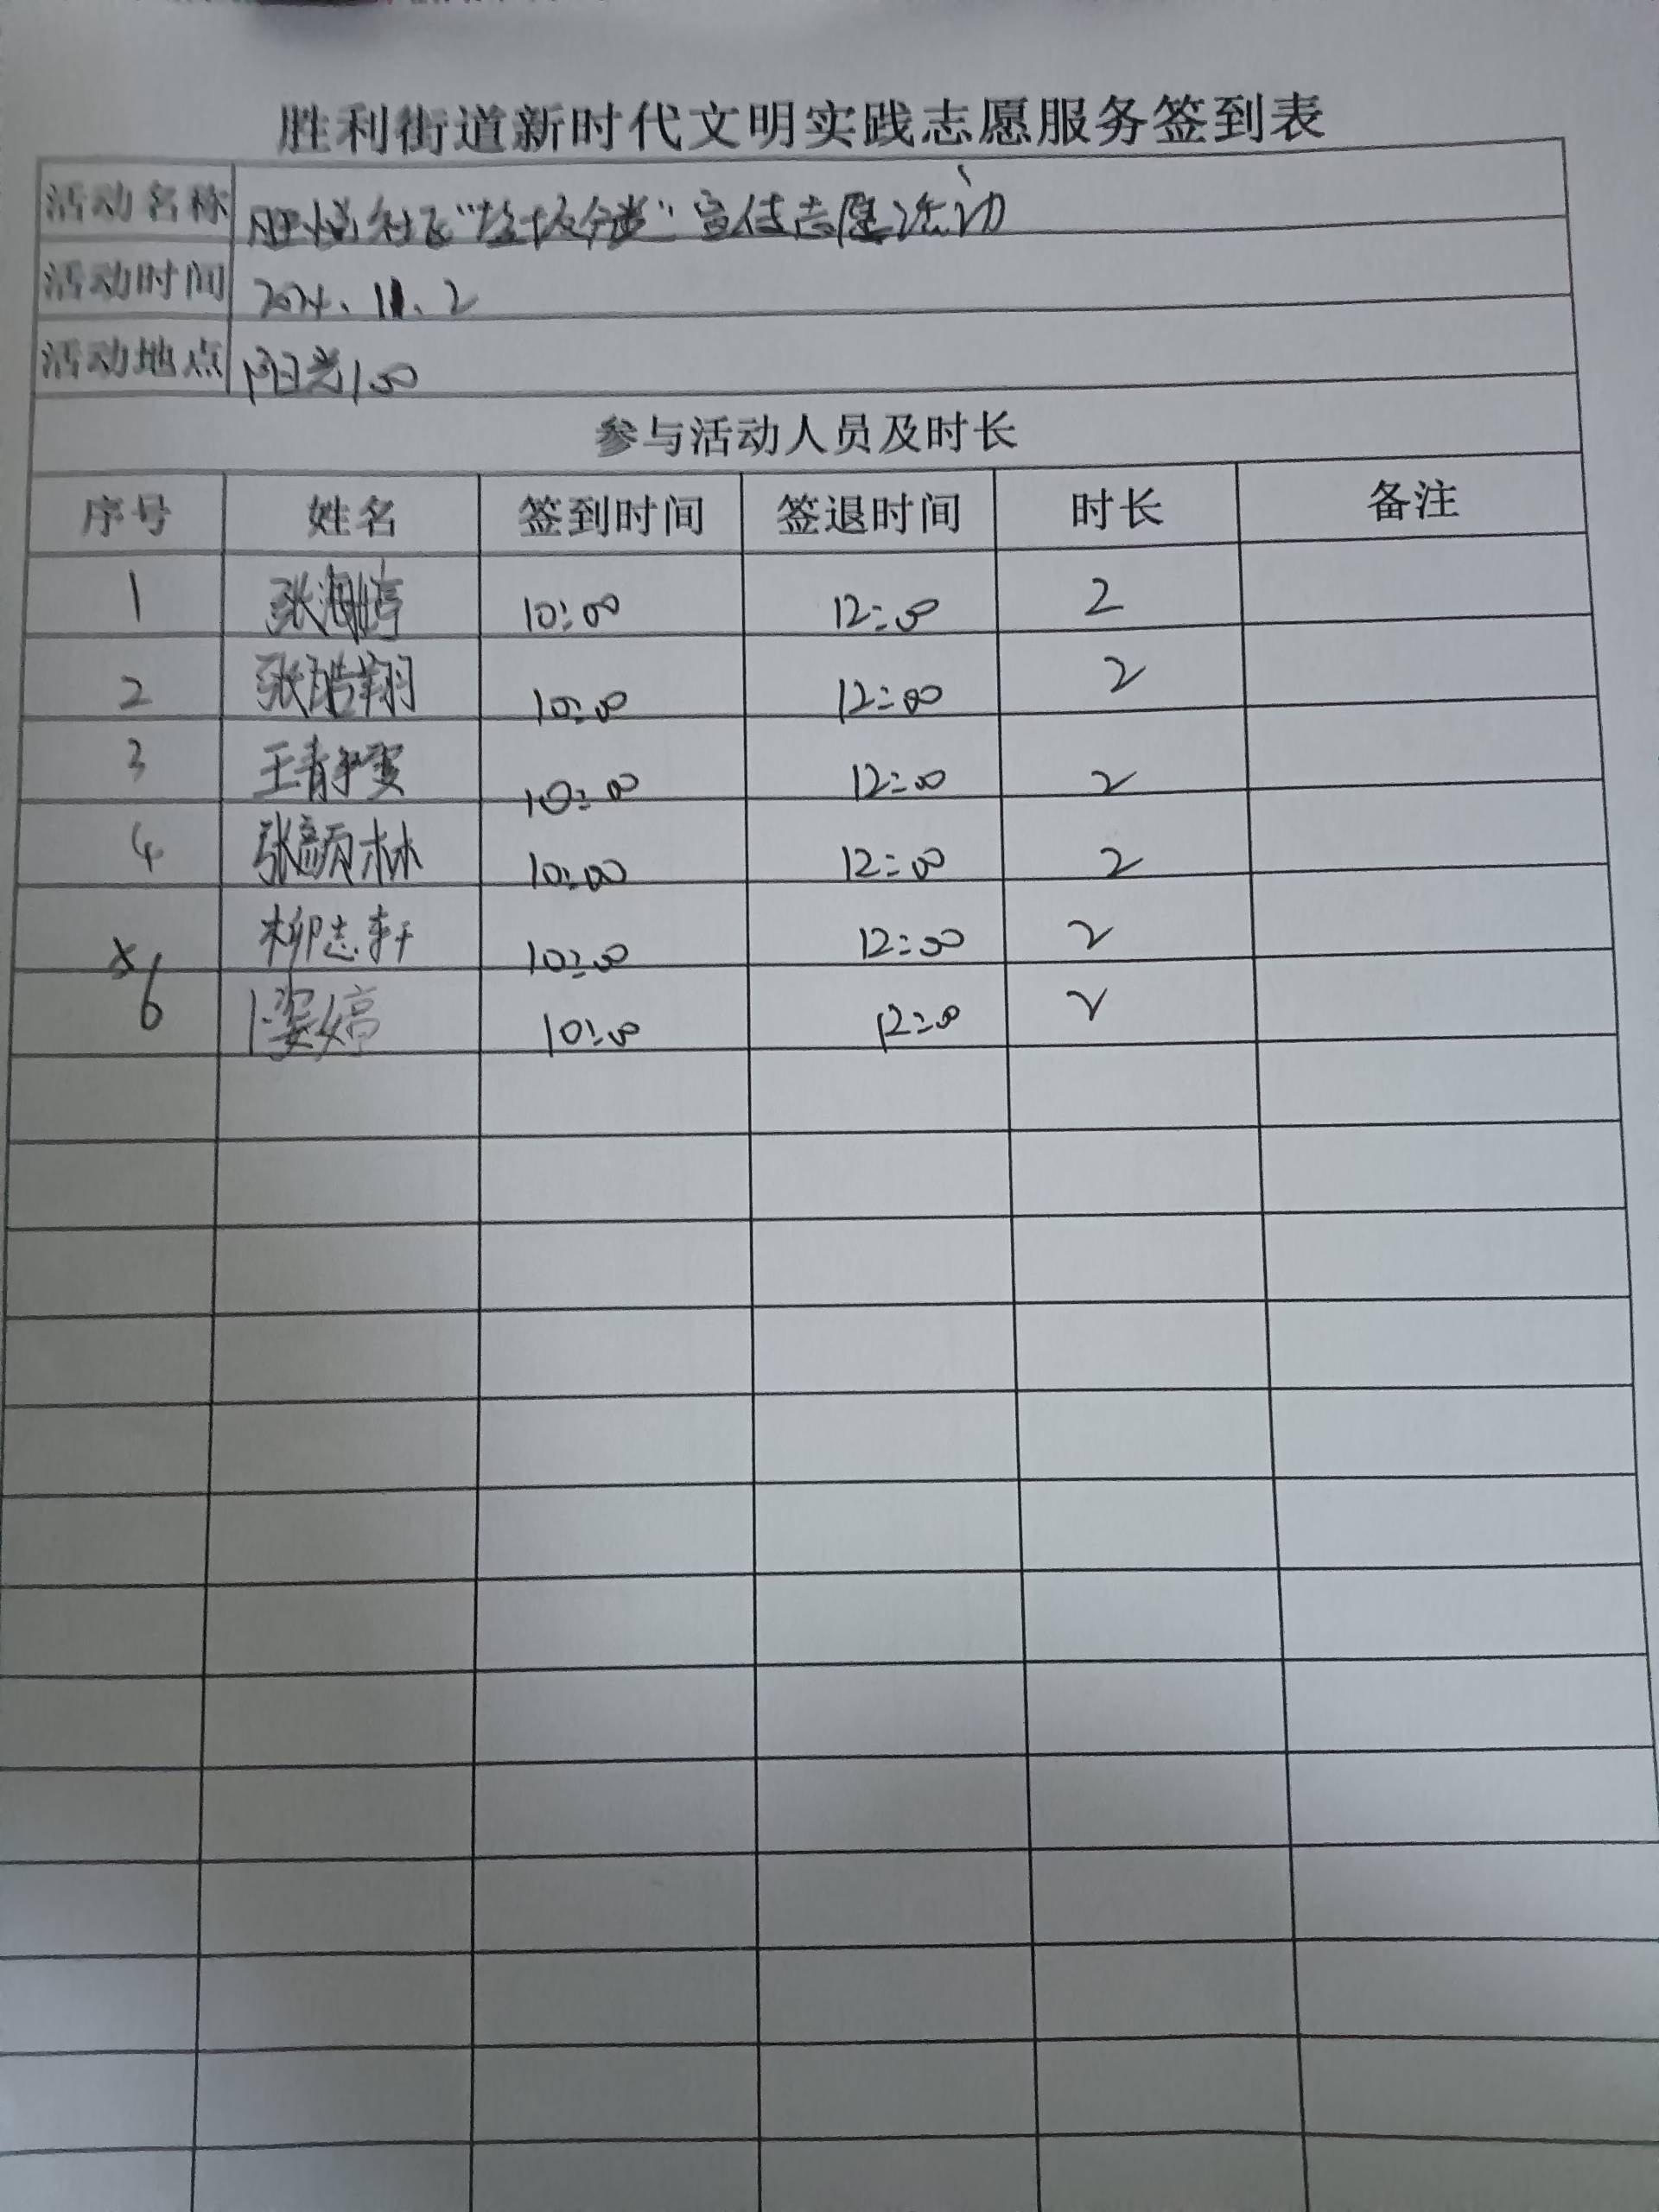 胜利街道新时代文明实践志愿服务签到表
活动名称 胜悦社区“垃圾分类”宣传志愿活动
活动时间 2024.11.2
活动地点 阳光100
参与活动人员及时长
序号 姓名 签到时间 签退时间 时长 备注
1 张海婷 10:00 12:00 2
2 张皓翔 10:00 12:00 2
3 王青 10:00 12:00 2
4 张林 10:00 12:00 2
5 柳志轩 10:00 12:00 2
6 卜婷 10:00 12:00 2